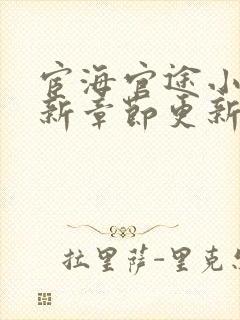 宦海官途小
新章节更新
拉里萨-里克